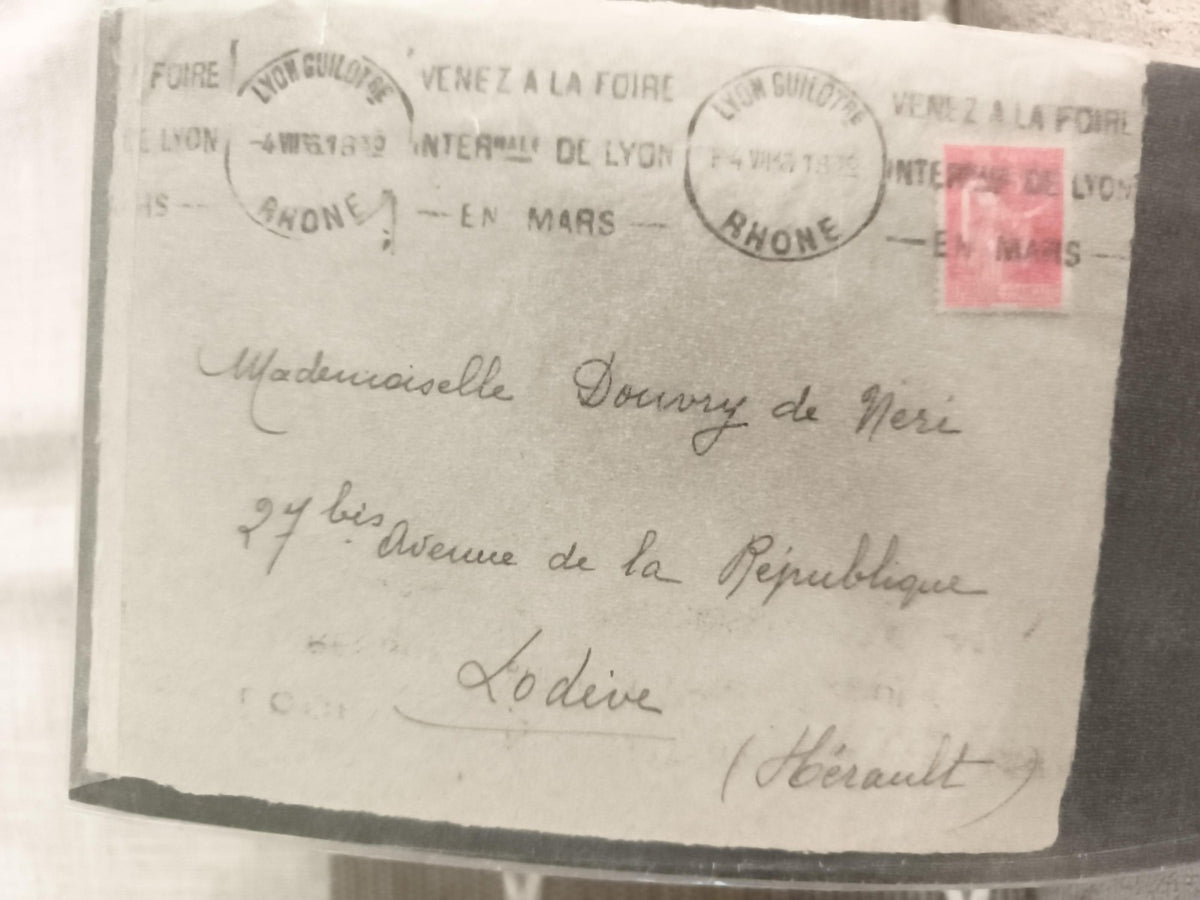 FOIRE
DE LYON
RS --
LYON GUILOTRE
RHONE
VENEZ A LA FOIRE
INTERNALE DE LYON
— EN MARS —
LYON GUILOTRE
RHONE
VENEZ A LA FOIRE
INTERNALE DE LYON
— EN MARS —
Mademoiselle Douvry de Néri
27 bis Avenue de la République
Lodève
(Hérault)